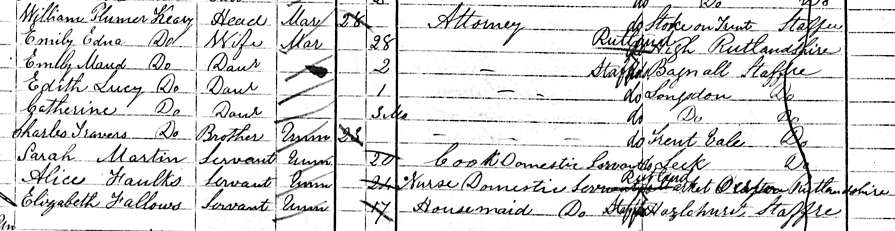 William Plumer Keary Head Mar 28 Attorney do Stoke on Trent Staffre
Emily Edna Do Wife Mar 28 Rutland High Rutlandshire
Emily Maud Do Daur 2 - Staffre Bagnall Staffre
Edith Lucy Do Daur 1 - do Longdon Do
Catherine Do Daur 3 Mo do Do Do
Charles Travers Do Brother Unm 23 - do Trent Vale Do
Sarah Martin Servant Unm 20 Cook Domestic Servant do Leek Do
Alice Faulks Servant Unm 21 Nurse Domestic Servant Rutland Market Rutlandshire
Elizabeth Fallows Servant Unm 17 Housemaid Do Staffre Staffre